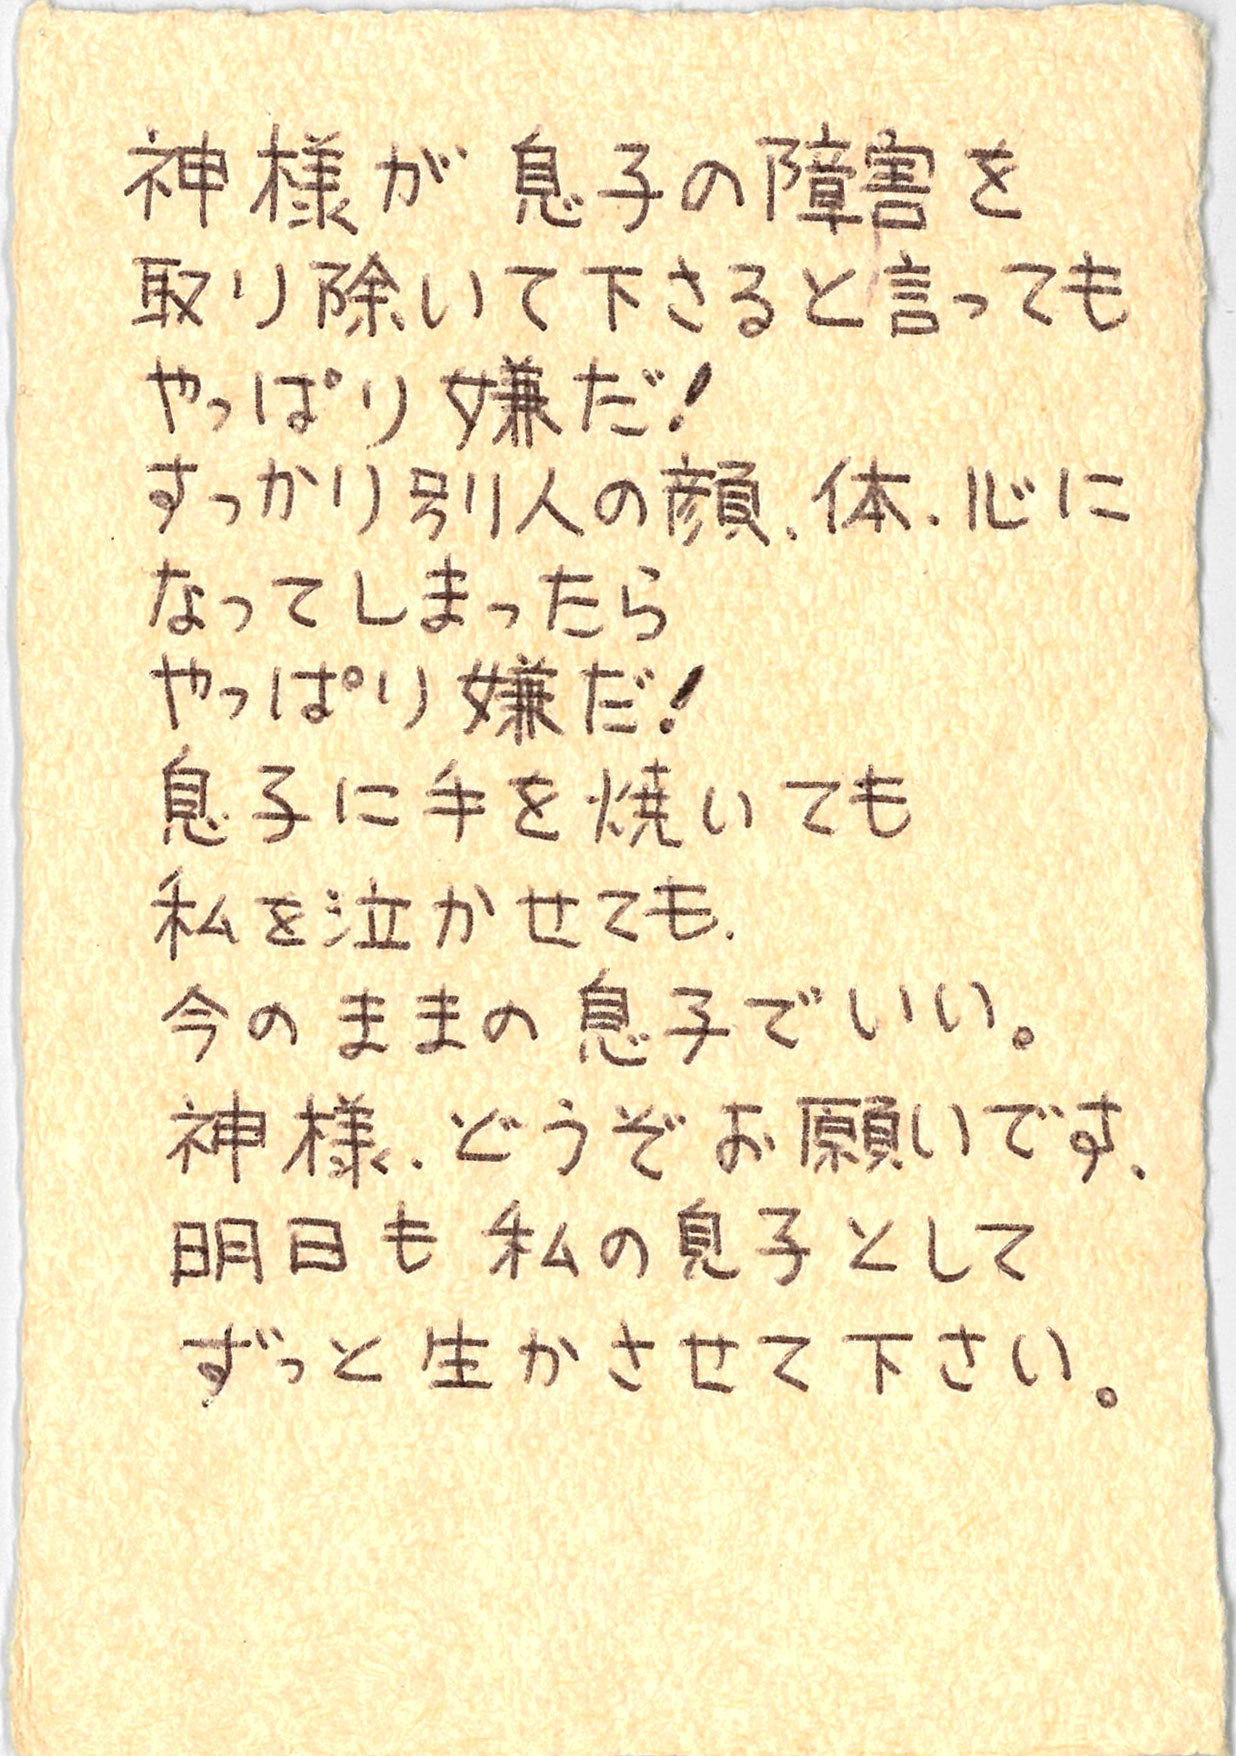 神様が息子の障害を
取り除いて下さると言っても
やっぱり嫌だ!
すっかり別人の顔、体、心に
なってしまったら
やっぱり嫌だ!
息子に手を焼いても
私を泣かせても、
今のままの息子でいい。
神様、どうぞお願いです、
明日も私の息子として
ずっと生かさせて下さい。